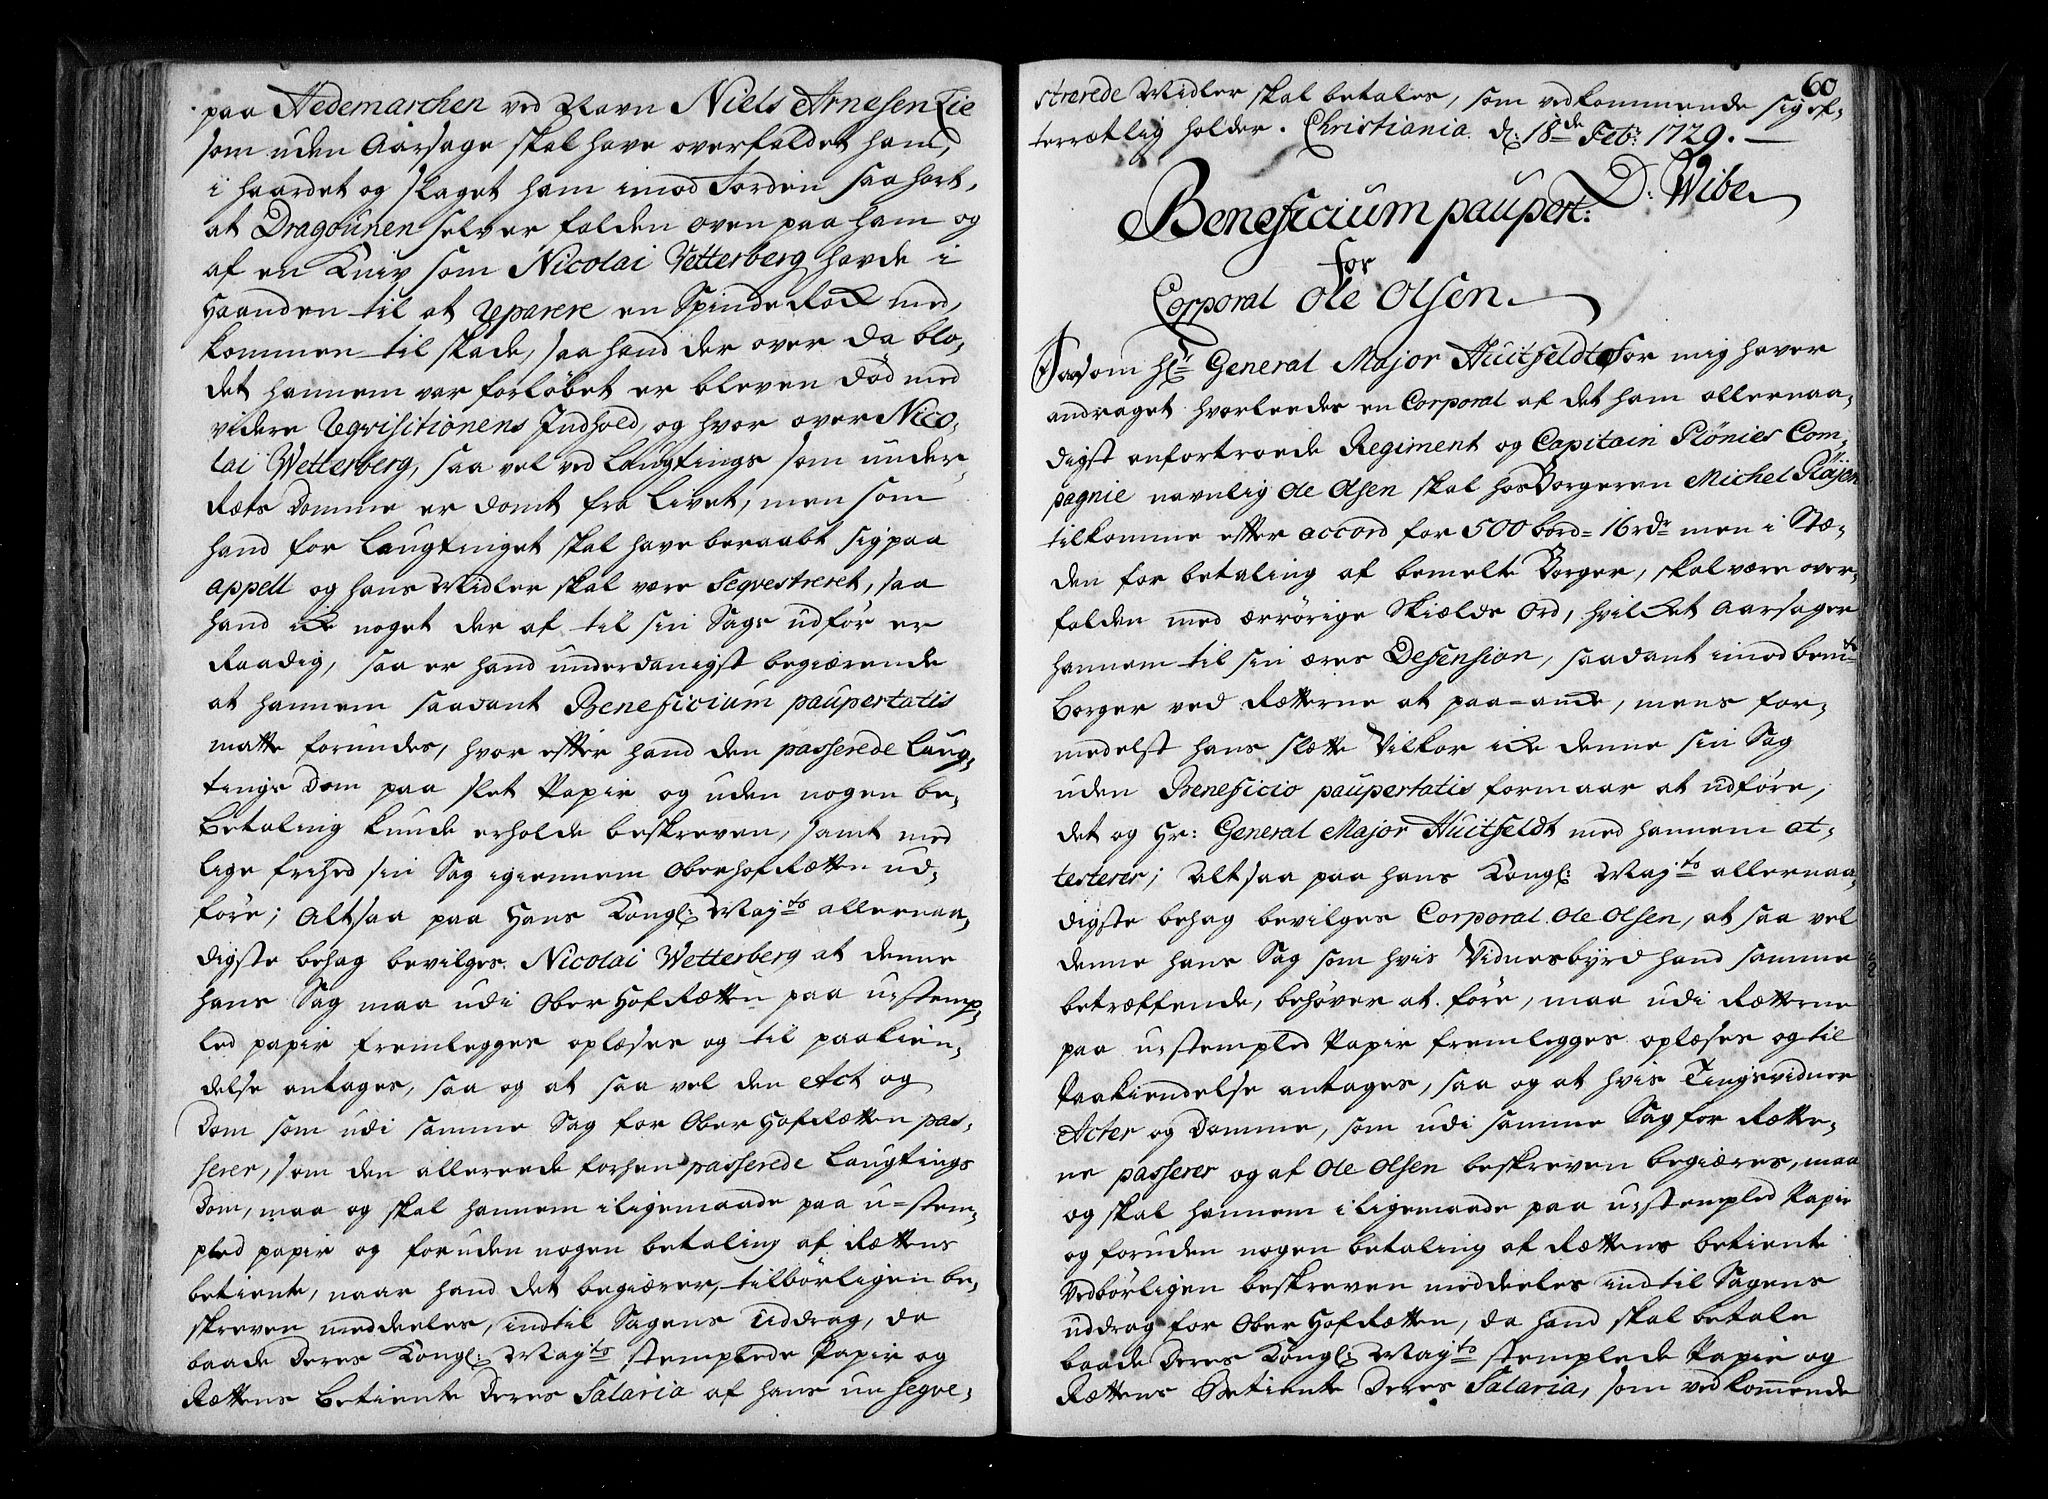 paa Hedemarchen ved Navn Niels Arnesen Lie
som uden Aarsage skal have overfaldet ham,
i haardet og slaget ham imod Jorden saa hart,
at Dragounen selv er falden oven paa ham og
af en Kniv som Nicolai Vetterberg havde i
Haanden til at reparere en Spinde Rock med,
kommen til skade, saa hand der over da blo-
det hannem var forløbet er bleven død med
videre Reqvisitionens Indhold, og hvor over Nico-
lai Wetterberg, saa vel ved Laugtings som under
Rets Domme er dømt fra Livet, men som
hand for Laugtinget skal have beraabt sig paa
appell og hans Midler skal være Seqvestreret, saa
hand icke noget der af til sin Sags udfør er
Raadig, saa er hand underdanigst begiærende
at hannem saadant Beneficium paupertatis
matte forundes, hvor efter hand den passerede Laug-
tings Dom paa slet Papir og uden nogen be-
betaling kunde erholde beskreven, samt med
lige frihed sin Sag igiennem Oberhofretten ud-
føre; Altsaa paa Hans Kongl: May:ts allernaa-
digste behag bevilges Nicolai Wetterberg at denne
hans Sag maa udi Ober Hof Retten paa u-stemp-
led papir fremlegges oplæses og til paakien-
delse antages, saa og at saa vel den Act og
Dom som udi samme Sag for Ober Hof Retten pas-
serer, som den allereede forhen passerede Laugtings
Dom, maa og skal hannem i ligemaade paa u-stem-
pled papir og foruden nogen betaling af Rettens
betiente, naar hand det begiærer, tilbørligen be-
skreven meddeeles, indtil Sagens Uddrag, da
baade Deres Kongl: May:ts stemplede Papir og
Rettens Betiente Deres Salaria af hans nu seqve-
60
strerede Midler skal betales, som vedkommende sig ef-
terrætlig holder. Christiania d: 18de Feb: 1729.
D: Wibe
Beneficium paupert:
for
Corporal Ole Olsen.
Saasom Hr General Major Huitfeldt for mig haver
andraget hvorleedes en Corporal af det ham allernaa-
digst anfortroede Regiment og Capitain Plönies Com-
pagnie navnlig Ole Olsen skal hos Borgeren Michel Pläjen
tilkomme efter accord for 500 bord = 16 rdr men i Stæ-
den for betaling af bemelte Borger, skal være over-
falden med ærrørige Skields Ord, hvilcket aarsager
hannem til sin æres Defension, saadant imod bemte
Borger ved Retterne at paa-ancke, mens for-
medelst hans slette Vilkor icke denne sin Sag
uden Beneficio paupertatis formaar at udføre,
det og Hr: General Major Huitfeldt med hannem at-
testerer; Altsaa paa hans Kongl: May:ts allernaa-
digste behag bevilges Corporal Ole Olsen, at saa vel
denne hans Sag som hvis Vidnesbyrd hand samme
betreffende, behøver at føre, maa udi Retterne
paa u-stempled Papir fremlegges oplæses og til
Paakiendelse antages, saa og at hvis Tingsvidner
Acter og Domme, som udi samme Sag for Rette-
ne passerer og af Ole Olsen beskreven begiæres, maa
og skal hannem i ligemaade paa u-stempled Papir
og foruden nogen betaling af Rettens betiente
Vedbørligen beskreven meddeeles indtil Sagens
uddrag for Ober Hof Retten, da hand skal betale
baade Deres Kongl: May:ts stemplede Papir og
Rettens Betiente Deres Salaria, som vedkommende